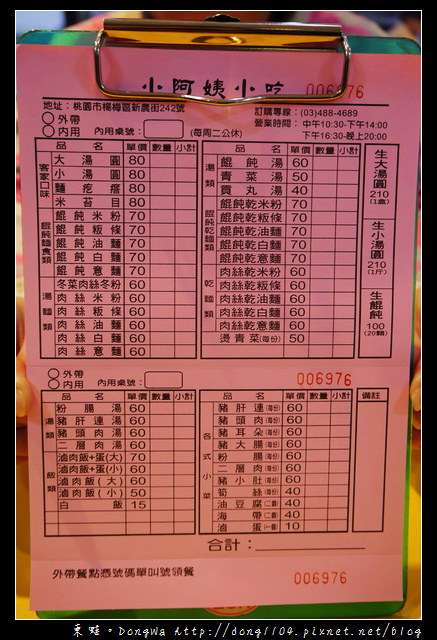 小阿姨小吃 006976
地址：桃園市楊梅區新農街242號
訂購專線：(03)488-4689
營業時間：中午10:30-下午14:00
下午16:30-晚上20:00
外帶
內用 內用桌號： (每周二公休)
品名 單價 數量 小計
客家口味
大湯圓 80
小湯圓 80
麵疙瘩 80
米苔目 80
餛飩麵食類
餛飩米粉 70
餛飩粄條 70
餛飩油麵 70
餛飩白麵 70
餛飩意麵 70
湯麵類
冬菜肉絲冬粉 60
肉絲米粉 60
肉絲粄條 60
肉絲油麵 60
肉絲白麵 60
肉絲意麵 60
品名 單價 數量 小計
湯類
餛飩湯 60
青菜湯 50
貢丸湯 40
餛飩乾麵類
餛飩乾米粉 70
餛飩乾粄條 70
餛飩乾油麵 70
餛飩乾白麵 70
餛飩乾意麵 70
乾麵類
肉絲乾米粉 60
肉絲乾粄條 60
肉絲乾油麵 60
肉絲乾白麵 60
肉絲乾意麵 60
燙青菜(每份) 50
生大湯圓
210
(1盒)
生小湯圓
210
(1斤)
生餛飩
100
(20顆)
外帶
內用 內用桌號： 006976
品名 單價 數量 小計
湯類
粉腸湯 60
豬肝連湯 60
豬頭肉湯 60
二層肉湯 60
飯類
滷肉飯+蛋(大) 70
滷肉飯+蛋(小) 60
滷肉飯(大) 60
滷肉飯(小) 50
白飯 15
品名 單價 數量 小計 備註
各式小菜
豬肝連(每份) 60
豬頭肉(每份) 60
豬耳朵(每份) 60
豬大腸(每份) 60
粉腸(每份) 60
二層肉(每份) 60
豬小肚(每份) 60
筍絲(每份) 40
油豆腐(二個) 40
海帶(二個) 40
滷蛋(一個) 10
合計：
外帶餐點憑號碼單叫號領餐
006976
東蛙。DongWa http://dong1104.pixnet.net/blog